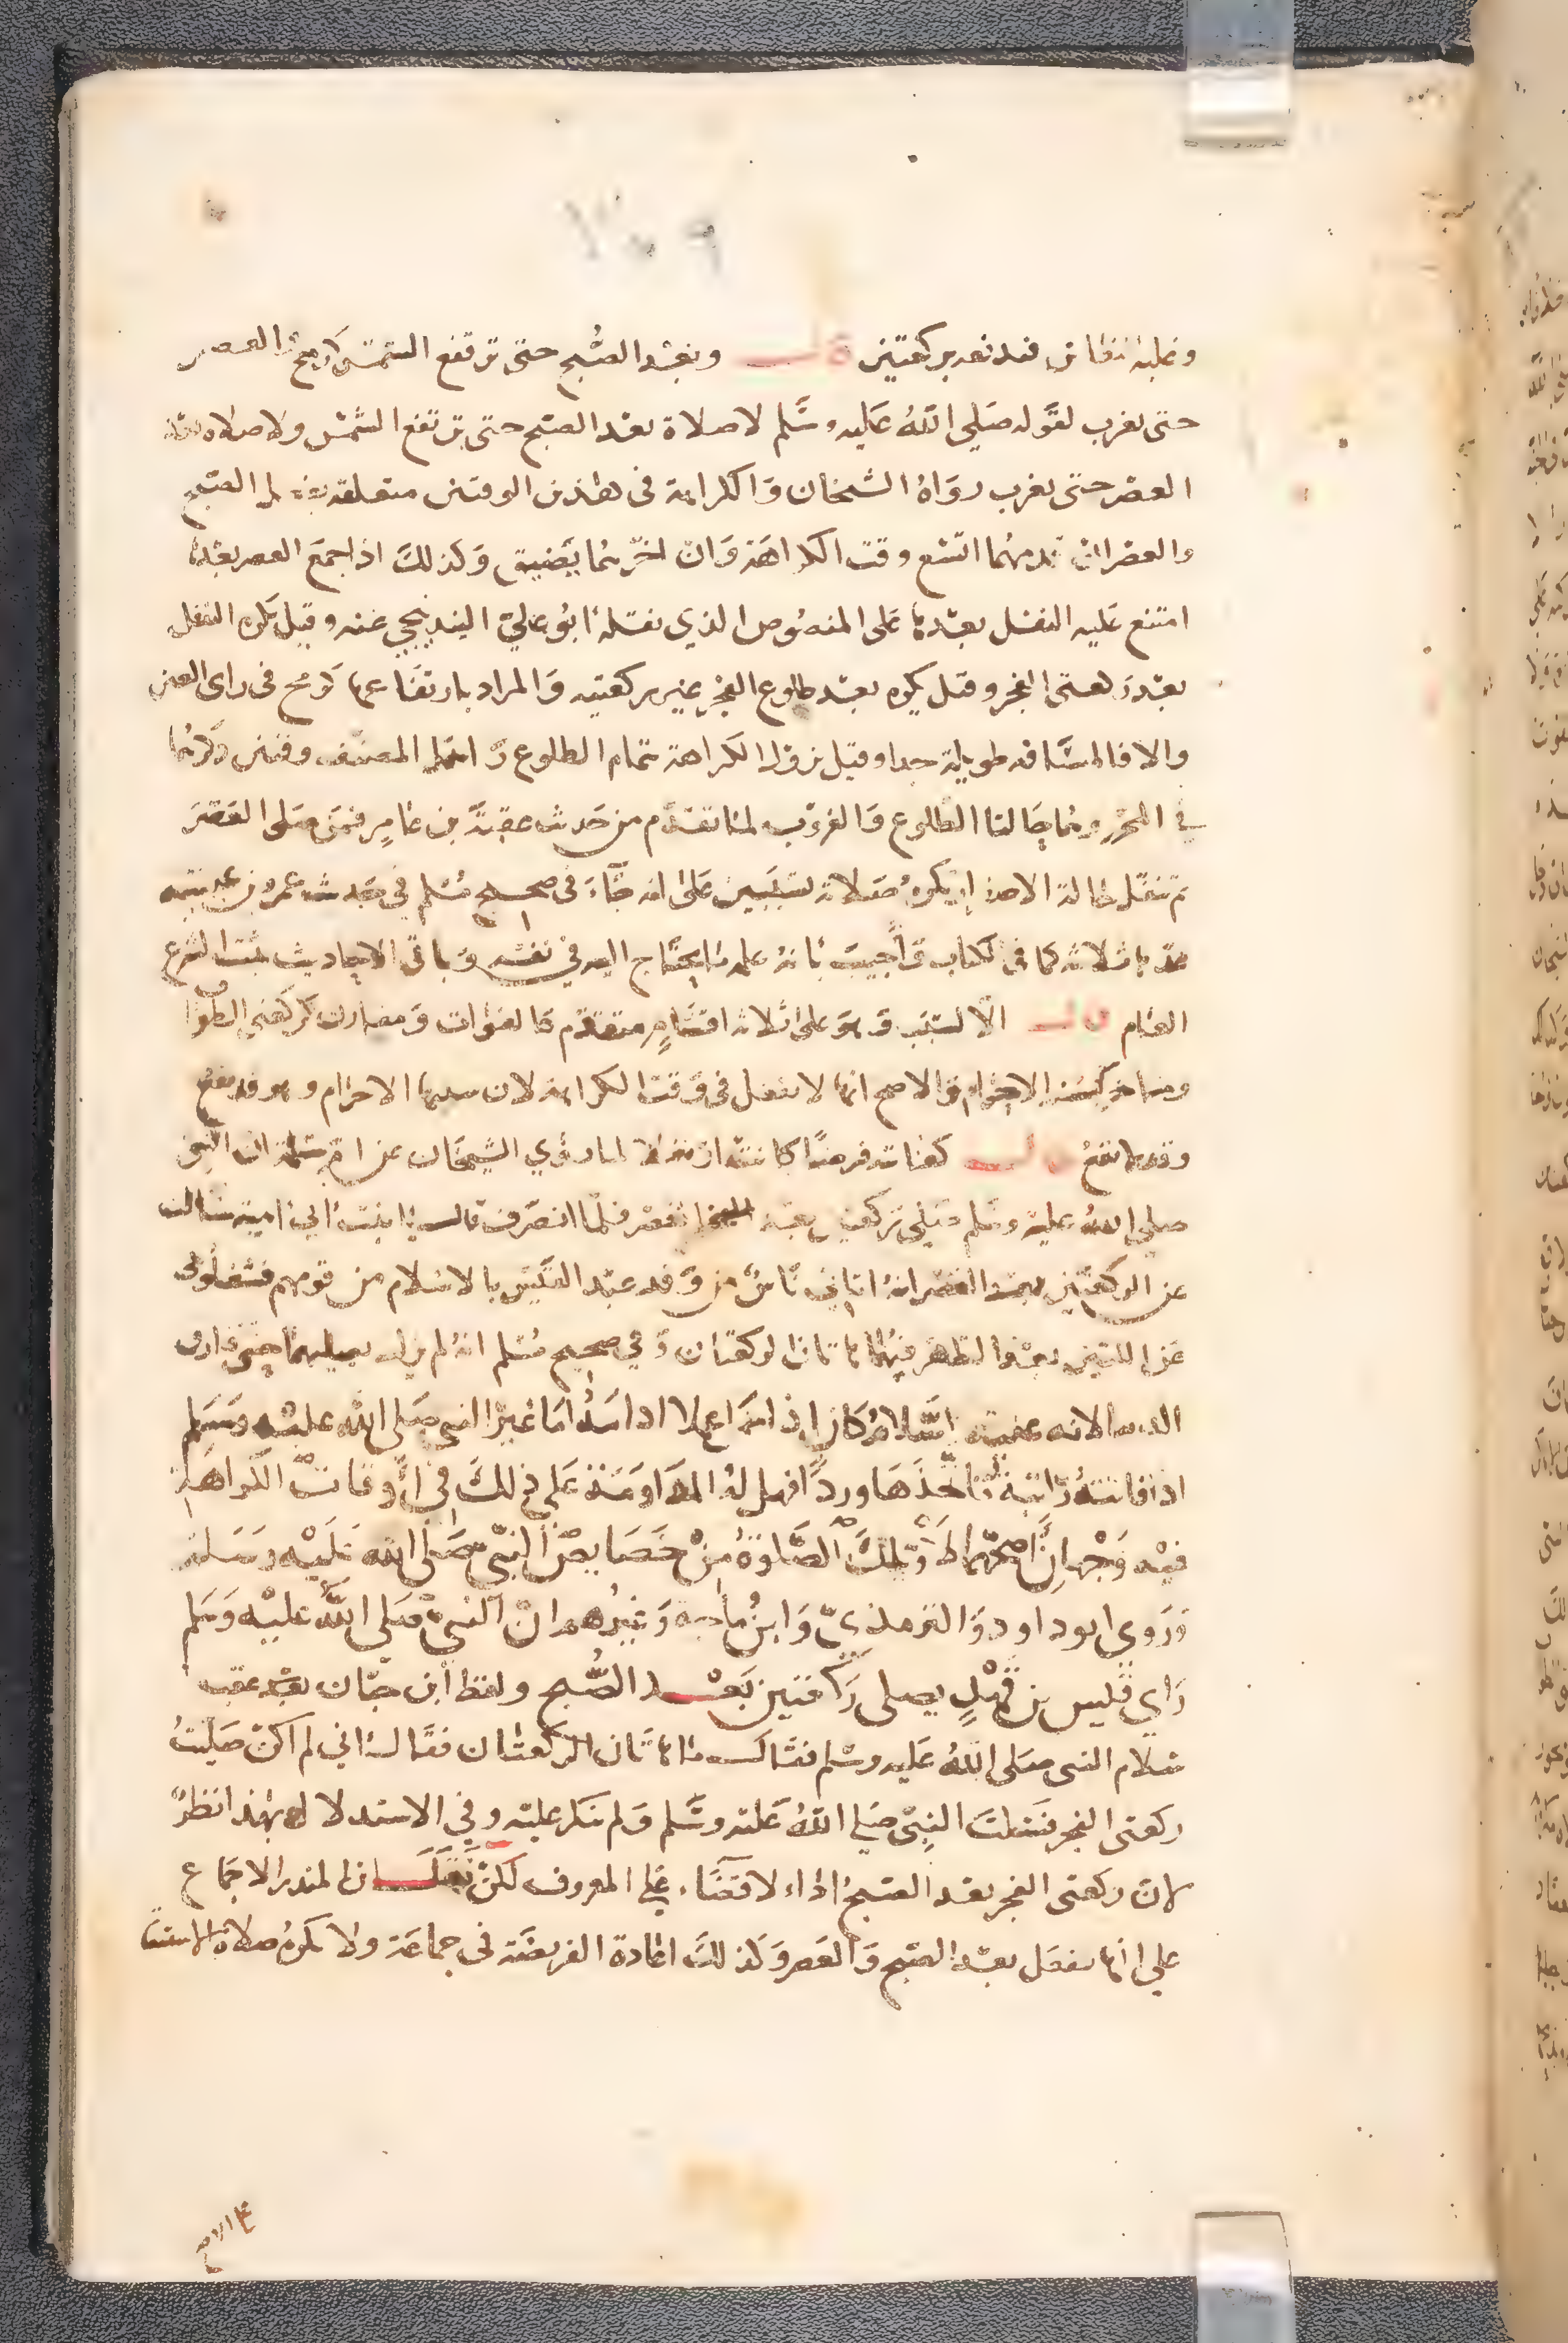 وغلبه النعاس فيدفعه بركعتين قال وبعد الصبح حتى ترتفع الشمس كرمح والعصر
حتى تغرب لقوله صلى الله عليه وسلم لا صلاة بعد الصبح حتى ترتفع الشمس ولا صلاة بعد
العصر حتى تغرب رواه الشيخان والكراهة في هذين الوقتين متعلقة بفعل الصبح
والعصر ان قدمهما اتسع وقت الكراهة وان اخرهما يضيق وكذلك اذا جمع العصر بعدها
امتنع عليه النفل بعدها على المنصوص الذي نقله ابو علي البندنيجي عنه وقيل يكره النفل
بعد ركعتي الفجر وقيل يكره بعد طلوع الفجر غير ركعتيه والمراد بارتفاعها كرمح في راي العين
والا فالمسافة طويلة جدا وقيل تزول الكراهة بتمام الطلوع واهمل المصنف وقتين ذكرهما
في المحرر وهما حالتا الطلوع والغروب لما تقدم من حديث عقبة بن عامر فمن صلى العصر
ثم تنفل حالة الاصفرار يكره صلاته لسببين على انه جاء في صحيح مسلم في حديث عمرو بن عبسة
عدها ثلاثة كما في الكتاب واجيب بانه علمه ما يحتاج اليه في نفسه وباقي الاحاديث بيّنت الشرع
العام قال الا لسبب وهو على ثلاثة اقسام متقدم كالفوات ومقارن كركعتي الطواف
ومتاخر كسنة الاحرام والاصح انها لا تفعل في وقت الكراهة لان سببها الاحرام وهو قد يقع
وقد لا يقع قال كفائتة فرضا كانت او نفلا لما روي الشيخان عن ام سلمة ان النبي
صلى الله عليه وسلم صلى ركعتين بعد العصر فلما انصرف قال يا ابنة ابي امية سالت
عن الركعتين بعد العصر انه اتاني ناس من وفد عبد القيس بالاسلام من قومهم فشغلوني
عن اللتين بعد الظهر فهما هاتان الركعتان وفي صحيح مسلم انه لم يزل يصليهما حتى فارق
الدنيا لانه عليه السلام كان اذا عمل عملا ادامه اما غير النبي صلى الله عليه وسلم
اذا فاتته راتبة فاتخذها وردا فهل له المداومة على ذلك في اوقات الكراهة
فيه وجهان اصحهما لا وتلك الصلوة من خصايص النبي صلى الله عليه وسلم
وروي ابو داود والترمذي وابن ماجه وغيرهم ان النبي صلى الله عليه وسلم
راي قيس بن قهد يصلي ركعتين بعد الصبح ولفظ ابن حبان بعد عقب
سلام النبي صلى الله عليه وسلم فقال ما هاتان الركعتان فقال اني لم اكن صليت
ركعتي الفجر فسكت النبي صلى الله عليه وسلم ولم ينكر عليه وفي الاستدلال بهذا نظر
لان ركعتي الفجر بعد الصبح اداء لا قضاء على المعروف لكن نقل ابن المنذر الاجماع
على انها تفعل بعد الصبح والعصر وكذلك اعادة الفريضة في جماعة ولا تكره صلاة الاستسقا